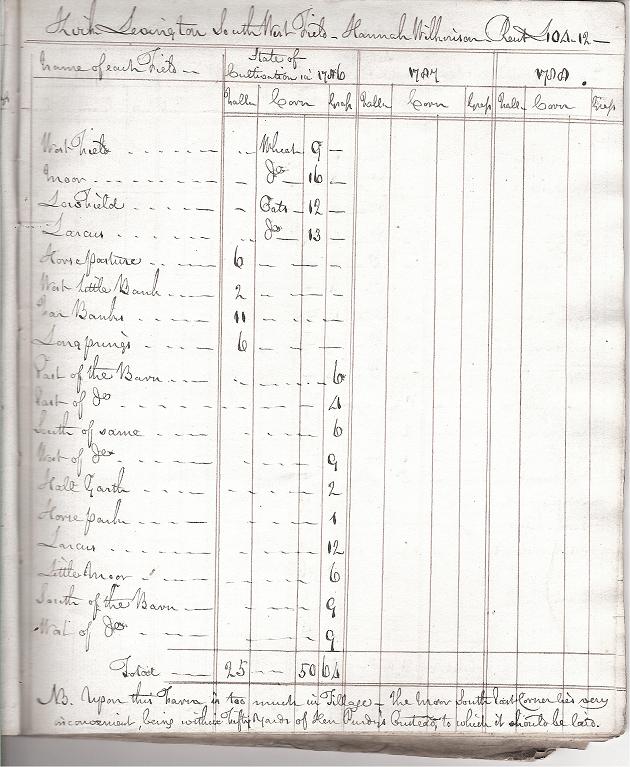 Kirk Levington South West Field – Hannah Wilkinson Rent £104–12–
Name of each Field – State of Cultivation in 1786 1787 1788.
Fallw Corn Grass Fallw Corn Grass Fallw Corn Grass
West Field Wheat 9 –
Moor Do 16 –
Low Field Oats – 12 –
Larcus Do 13 –
Horse pasture 6
West Little Bank 2
Far Banks 11
Longsprings 6
East of the Barn 6
East of Do 4
South of same 6
West of Do 9
Hall Garth 2
Horse park 1
Larcus 12
Little Moor 6
South of the Barn 9
West of Do 9
Total 25 50 64
NB. Upon this Farm is too much in Tillage – The Moor South East Corner lies very
inconvenient, being within Fifty Yards of Purdy's to which it should be laid.